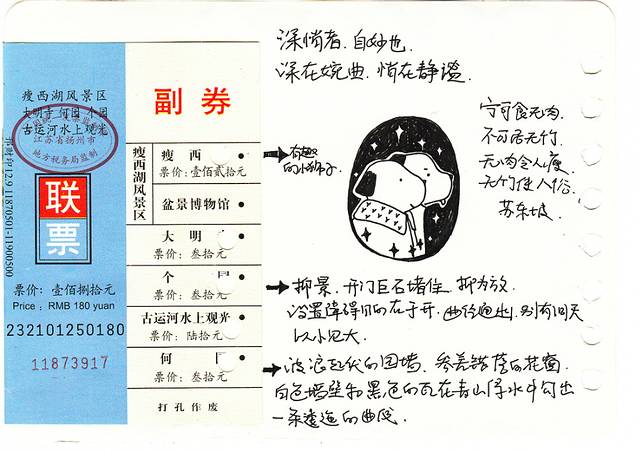 瘦西湖风景区
大明寺 何园 个园
古运河水上观光
江苏省扬州市
地方税务局监制
联票
票价：壹佰捌拾元
Price：RMB 180 yuan
232101250180
11873917
副券
瘦西湖风景区
瘦 西
票价：壹佰贰拾元
盆景博物馆
大 明
票价：叁拾元
个
票价：叁拾元
古运河水上观光
票价：陆拾元
何
票价：叁拾元
打孔作废
深悄者.自妙也.
深在婉曲.悄在静谧.
有趣
的小狮子
宁可食无肉
不可居无竹
无肉令人瘦
无竹使人俗
苏东坡
抑景.开门巨石堵住.抑为放.
设置障碍目的在于开.曲径通出.别有洞天
以小见大.
波浪起伏的围墙.参差错落的花窗
白色墙壁和黑色的瓦在青山绿水中勾出
一条透迤的曲线.